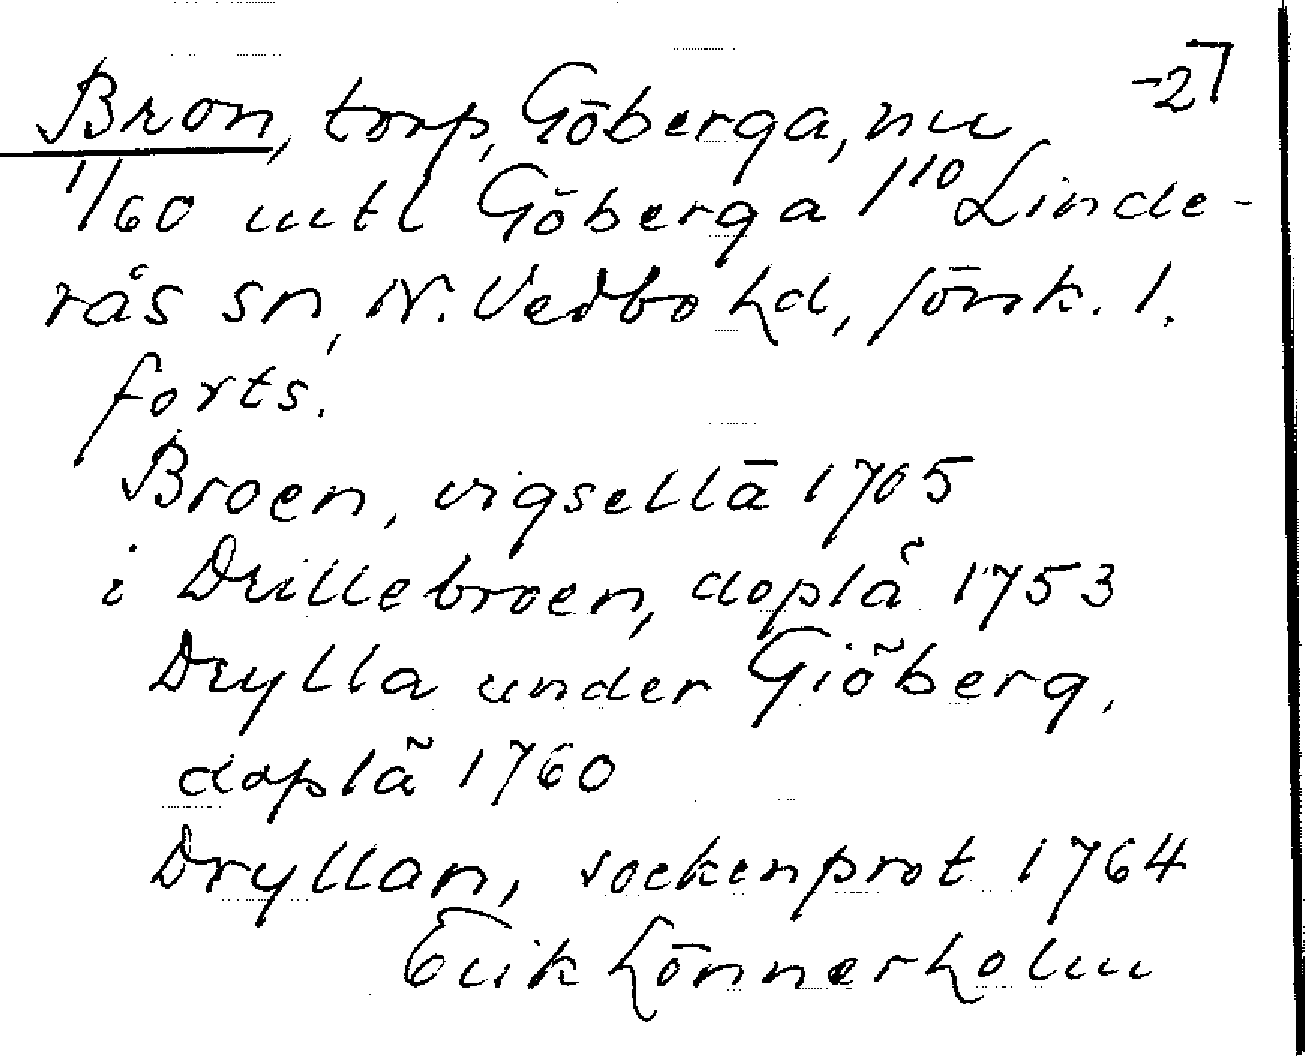 -2⌉
Bron, torp, Göberga, nu
1/60 mtl Göberga 1¹⁰ Linde-
rås sn, N. Vedbo hd, Jönk. l.
forts.
Broen, vigsellä 1705
i Drillebroen, doplä 1753
Drylla under Giöberg,
doplä 1760
Dryllan, sockenprot 1764
Erik Lönnerholm